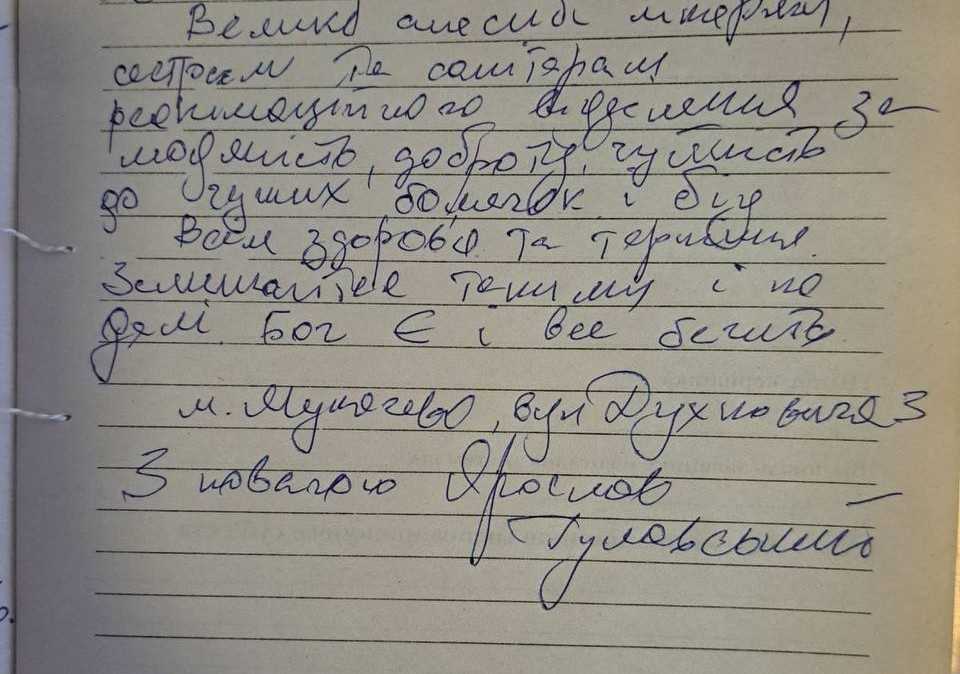 Велике спасибі лікарям,
сестрам та санітарам
реанімаційного відділення за
людяність, доброту, чуйність
до чужих болячок і бід
Всім здоров'я та терпіння.
Залишайтеся такими і на
далі. Бог Є і все бачить.
м. Мукачево, вул Духновича 3
З повагою Ярослав
Гуловський